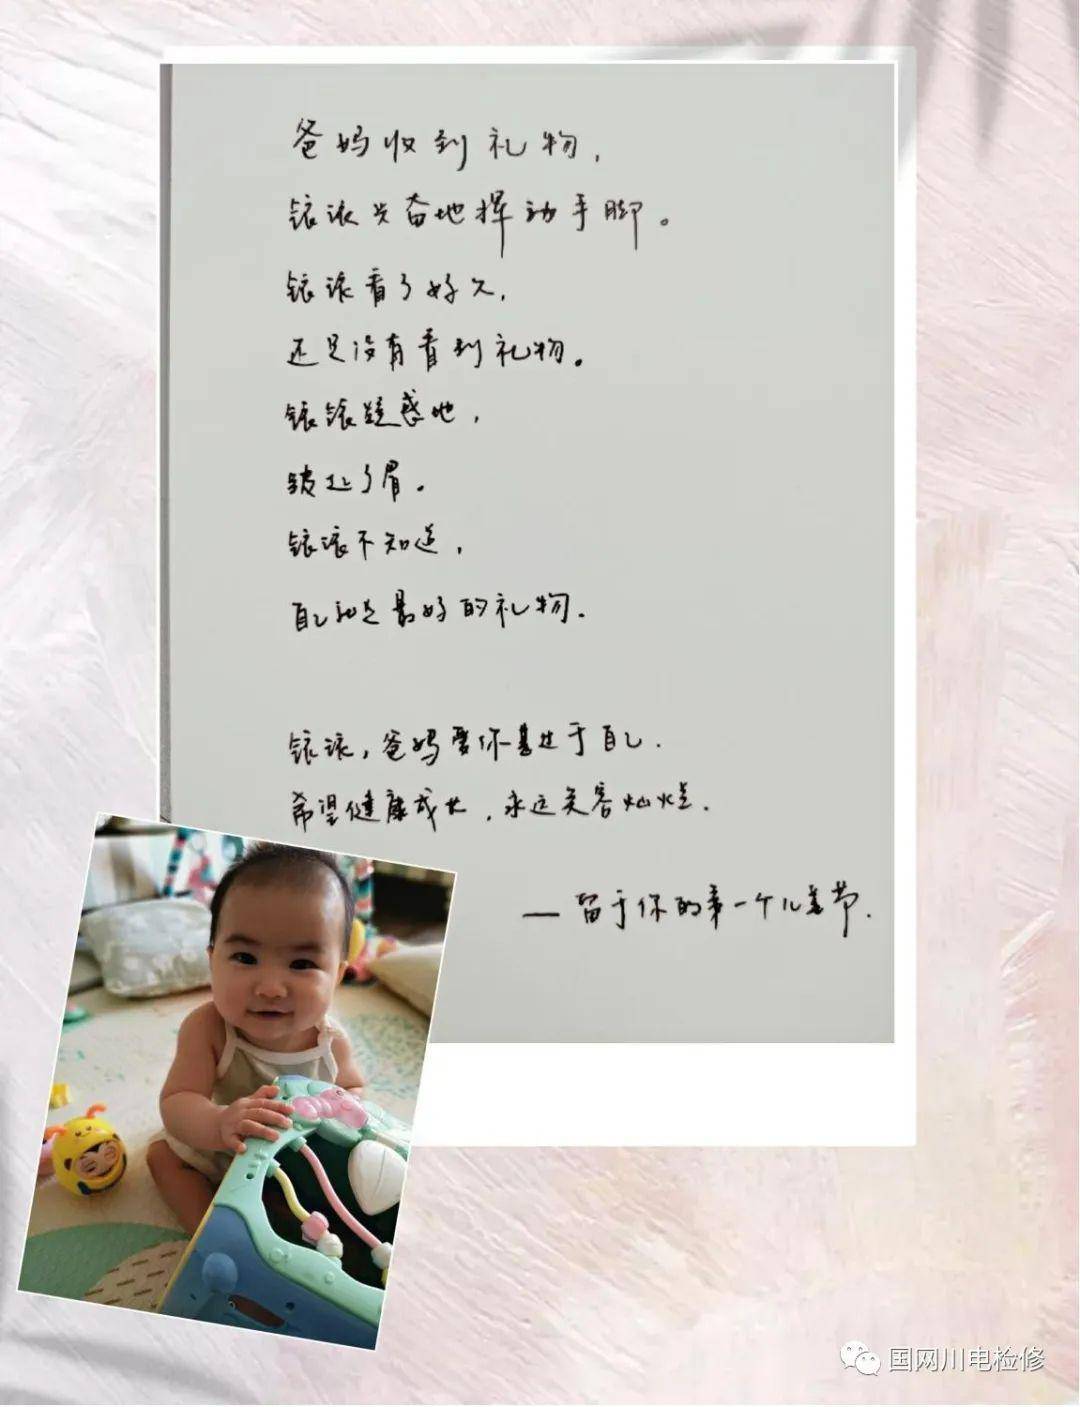 爸妈收到礼物，
铱铱兴奋地挥动手脚。
铱铱看了好久，
还是没有看到礼物。
铱铱疑惑地，
皱起了眉。
铱铱不知道，
自己就是最好的礼物。
铱铱，爸妈爱你甚过于自己.
希望健康成长，永远笑容灿烂.
— 留于你的第一个儿童节.
国网川电检修